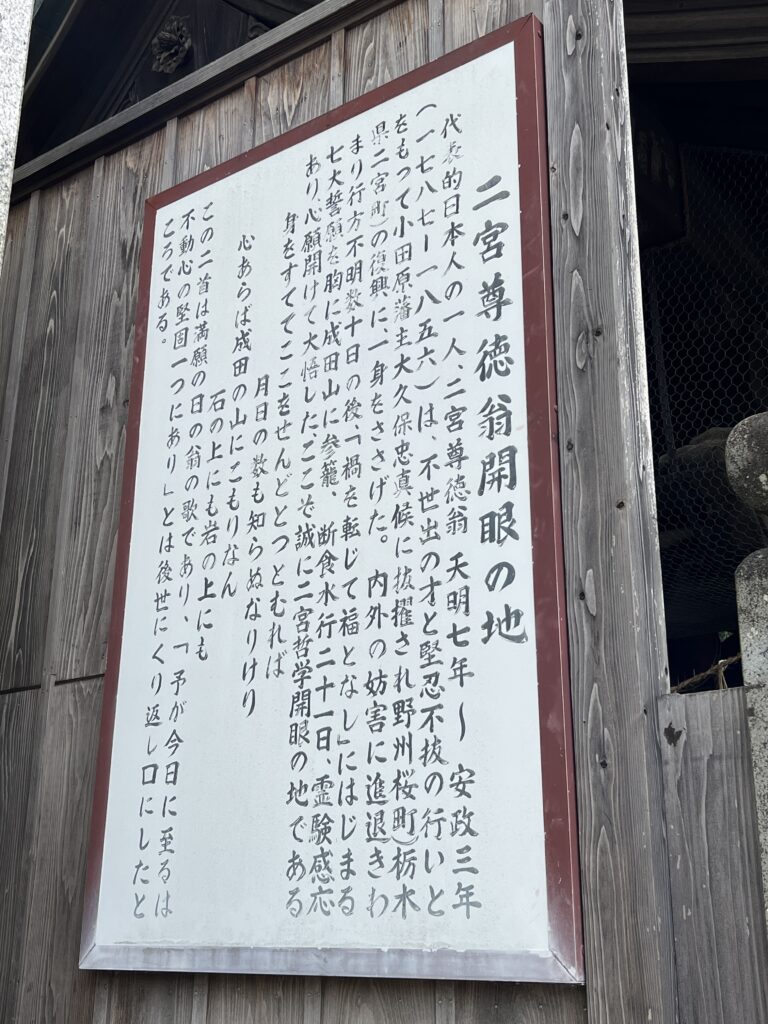 二宮尊徳翁開眼の地
代表的日本人の一人、二宮尊徳翁 天明七年~安政三年
(一七八七ー一八五六)は、不世出の才と堅忍不抜の行いと
をもって小田原藩主大久保忠真候に抜擢され野州桜町(栃木
県二宮町)の復興に、一身をささげた。内外の妨害に進退きわ
まり行方不明数十日の後、「禍を転じて福となし」にはじまる
七大誓願を胸に成田山に参籠、断食水行二十一日、霊験感応
あり、心願開けて大悟した、ここそ誠に二宮哲学開眼の地である
身をすててここをせんどとつとむれば
月日の数も知らぬなりけり
心あらば成田の山にこもりなん
石の上にも岩の上にも
この二首は満願の日の翁の歌であり、「予が今日に至るは
不動心の堅固一つにあり」とは後世にくり返し口にしたと
ころである。